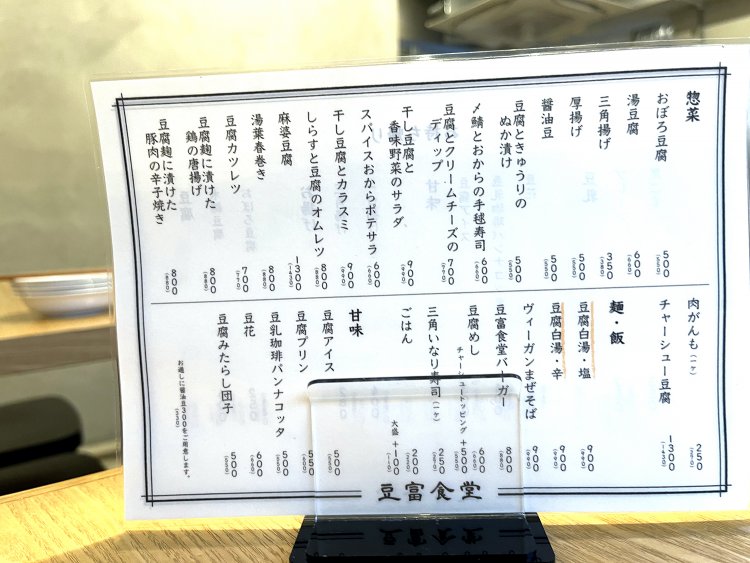 惣菜
おぼろ豆腐 500 (550)
湯豆腐 600 (660)
三角揚げ 350 (380)
厚揚げ 500 (550)
醤油豆 500 (550)
豆腐ときゅうりの
ぬか漬け 500 (550)
〆鯖とおからの手毬寿司 600 (660)
豆腐とクリームチーズの
ディップ 700 (770)
干し豆腐と
香味野菜のサラダ 900 (990)
スパイスおからポテサラ 600 (660)
干し豆腐とカラスミ 900 (990)
しらすと豆腐のオムレツ 800 (880)
麻婆豆腐 1300 (1430)
湯葉春巻き 800 (880)
豆腐カツレツ 700 (770)
豆腐麹に漬けた
鶏の唐揚げ 800 (880)
豆腐麹に漬けた
豚肉の辛子焼き 800 (880)
肉がんも(一ケ) 250 (275)
チャーシュー豆腐 1300 (1430)
麺・飯
豆腐白湯・塩 900 (990)
豆腐白湯・辛 900 (990)
ヴィーガンまぜそば 900 (990)
豆富食堂バーガー 800 (880)
豆腐めし 600 (660)
チャーシュートッピング +500 (550)
三角いなり寿司(一ケ) 250 (275)
ごはん 200 (220)
大盛 +100 (110)
甘味
豆腐アイス 500 (550)
豆腐プリン 550
豆乳珈琲パンナコッタ 500 (550)
豆花 600 (660)
豆腐みたらし団子 500 (550)
お通しに醤油豆300をご用意します。
(330)
豆富食堂